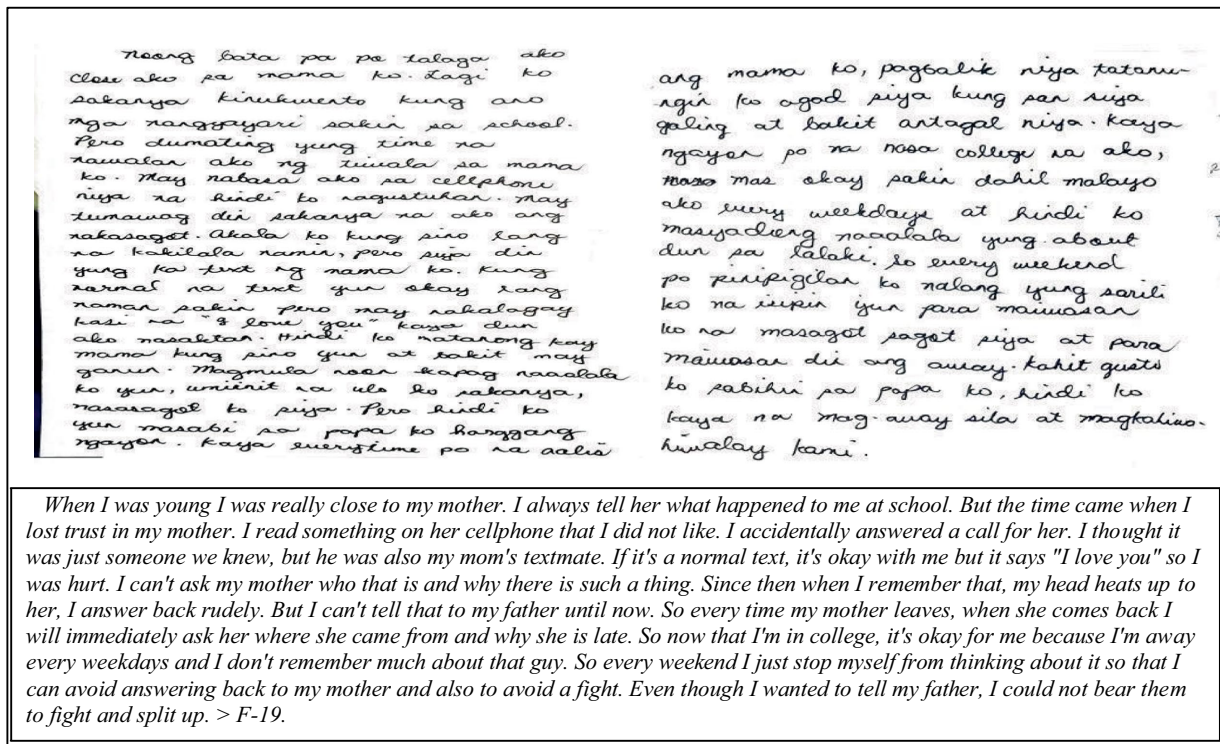 Noong bata pa po talaga ako
close ako sa mama ko. Lagi ko
sakanya kinukwento kung ano
mga nangyayari sakin sa school.
Pero dumating yung time na
nawalan ako ng tiwala sa mama
ko. May nabasa ako sa cellphone
niya na hindi ko nagustuhan. May
tumawag din sakanya na ako ang
nakasagot. Akala ko kung sino lang
na kakilala namin, pero siya din
yung ka text ng mama ko. Kung
normal na text yun okay lang
naman sakin pero may nakalagay
kasi na "I love you" kaya dun
ako nasaktan. Hindi ko matanong kay
mama kung sino yun at bakit may
ganun. Magmula noon kapag naaalala
ko yun, umiinit na ulo ko sakanya,
nasasagot ko siya. Pero hindi ko
yun masabi sa papa ko hanggang
ngayon. Kaya everytime po na aalis
ang mama ko, pagbalik niya tatanu-
ngin ko agad siya kung san siya
galing at bakit antagal niya. Kaya
ngayon po na nasa college na ako,
mas okay sakin dahil malayo
ako every weekdays at hindi ko
masyadong naaalala yung about
dun sa lalaki. So every weekend
po pinipigilan ko nalang yung sarili
ko na isipin yun para maiwasan
ko na masagot sagot siya at para
maiwasan din ang away. Kahit gusto
ko sabihin sa papa ko, hindi ko
kaya na mag-away sila at magkahiwa-
hiwalay kami.
When I was young I was really close to my mother. I always tell her what happened to me at school. But the time came when I
lost trust in my mother. I read something on her cellphone that I did not like. I accidentally answered a call for her. I thought it
was just someone we knew, but he was also my mom's textmate. If it's a normal text, it's okay with me but it says "I love you" so I
was hurt. I can't ask my mother who that is and why there is such a thing. Since then when I remember that, my head heats up to
her, I answer back rudely. But I can't tell that to my father until now. So every time my mother leaves, when she comes back I
will immediately ask her where she came from and why she is late. So now that I'm in college, it's okay for me because I'm away
every weekdays and I don't remember much about that guy. So every weekend I just stop myself from thinking about it so that I
can avoid answering back to my mother and also to avoid a fight. Even though I wanted to tell my father, I could not bear them
to fight and split up. > F-19.